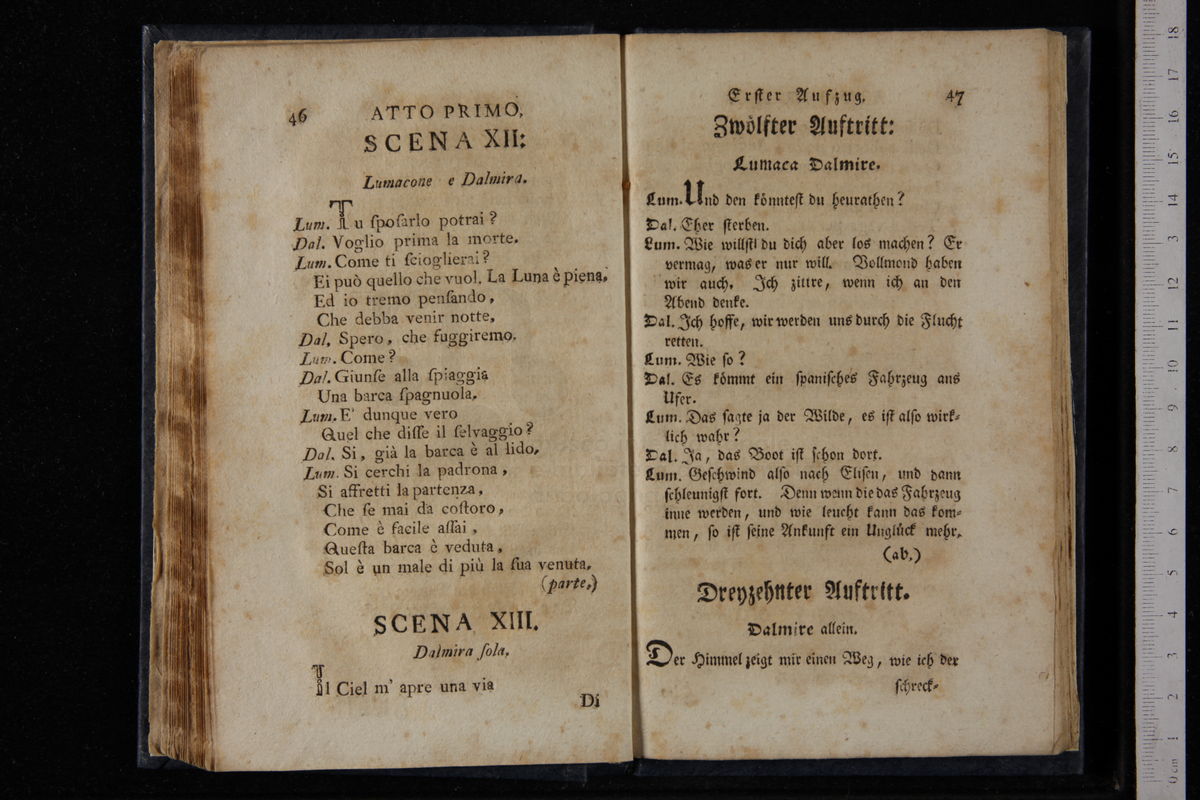 46 ATTO PRIMO,
SCENA XII:
Lumacone e Dalmira.
Lum. Tu ſpoſarlo potrai?
Dal. Voglio prima la morte.
Lum. Come ti ſcioglierai?
Ei può quello che vuol. La Luna è piena,
Ed io tremo penſando,
Che debba venir notte,
Dal. Spero, che fuggiremo.
Lum. Come?
Dal. Giunſe alla ſpiaggia
Una barca ſpagnuola.
Lum. E' dunque vero
Quel che diſſe il ſelvaggio?
Dal. Si, già la barca è al lido,
Lum. Si cerchi la padrona,
Si affretti la partenza,
Che ſe mai da coſtoro,
Come è facile aſſai,
Queſta barca è veduta,
Sol è un male di più la ſua venuta.
(parte.)
SCENA XIII.
Dalmira ſola.
Il Ciel m' apre una via
Di
Erſter Aufzug. 47
Zwölfter Auftritt:
Lumaca Dalmire.
Lum. Und den könnteſt du heurathen?
Dal. Eher ſterben.
Lum. Wie willſt du dich aber los machen? Er
vermag, was er nur will. Vollmond haben
wir auch. Ich zittre, wenn ich an den
Abend denke.
Dal. Ich hoffe, wir werden uns durch die Flucht
retten.
Lum. Wie ſo?
Dal. Es kömmt ein ſpaniſches Fahrzeug ans
Ufer.
Lum. Das ſagte ja der Wilde, es iſt alſo wirk⸗
lich wahr?
Dal. Ja, das Boot iſt ſchon dort.
Lum. Geſchwind alſo nach Eliſen, und dann
ſchleunigſt fort. Denn wenn die das Fahrzeug
inne werden, und wie leucht kann das kom⸗
men, ſo iſt ſeine Ankunft ein Unglück mehr.
(ab.)
Dreyzehnter Auftritt.
Dalmire allein.
Der Himmel zeigt mir einen Weg, wie ich der
ſchreck⸗
0 cm 1 2 3 4 5 6 7 8 9 10 11 12 13 14 15 16 17 18